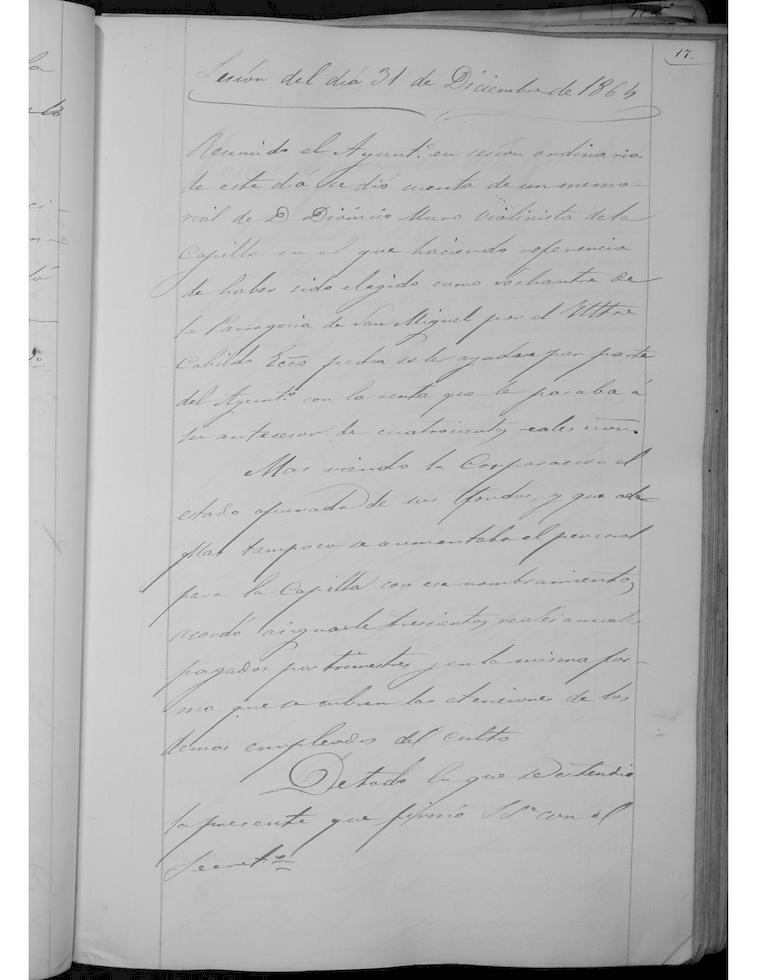 17.
Sesión del día 31 de Diciembre de 1864
Reunido el Ayunt.º en sesión ordinaria
de este día se dió cuenta de un memo-
rial de D. Dionicio Muro violinista de la
Capilla en el que haciendo referencia
de haber sido elegido como sochantre de
la Parroquia de San Miguel por el Illtre
Cabildo Ecco pedia se le ayudase por parte
del Ayunt.º con la renta que le pasaba á
su antecesor de cuatrocientos reales
Mas viendo la Corporación el
estado apurado de sus fondos, y que ade-
mas tampoco se aumentaba el personal
para la Capilla con ese nombramiento,
acordó asignarle trescientos reales anuales
pagados por trimestres y en la misma for-
ma que se cubren las atenciones de los
demas empleados del culto
De todo lo que se estendió
la presente que firmó S Sª con el
Secret.º